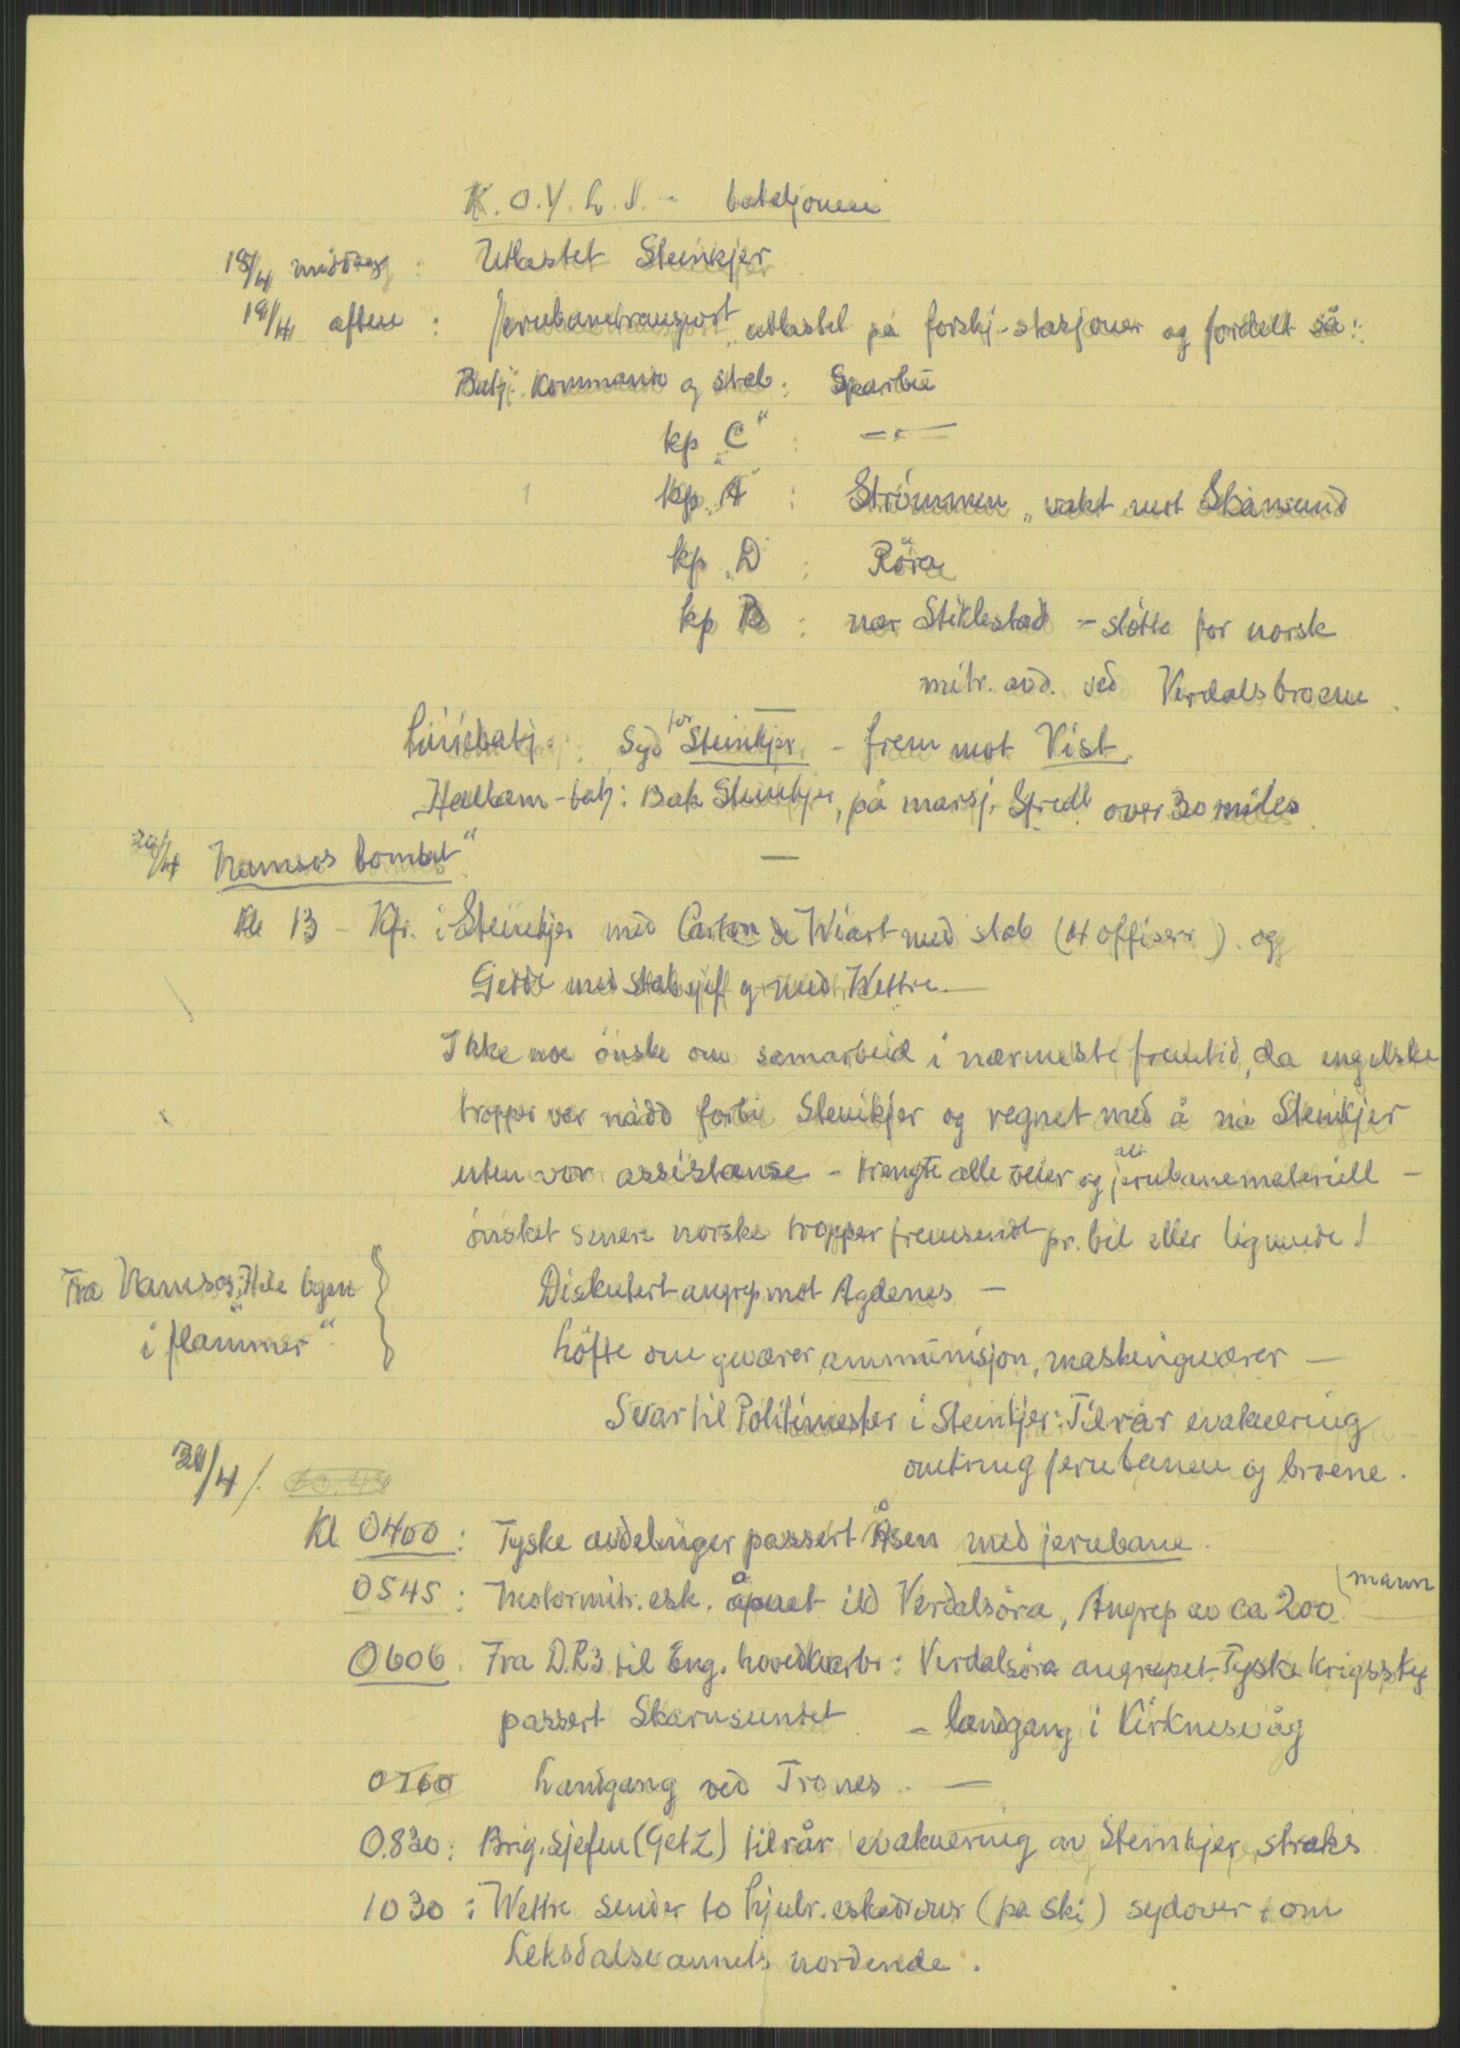 K.O.Y.L.I. - bataljonen
18/4 middag : Utlastet Steinkjer
19/4 aften : Jernbanetransport, utlastet på forskj. stasjoner og fordelt så:
Batj. kommando og stab : Sparbu
kp „C“ : — „ —
kp „A“ : Strömmen, vakt mot Skarnsund
kp „D : Röra
kp B : nær Stiklestad - stötte for norsk
mitr. avd. ved Verdalsbroene.
Liniebatj. : Syd for Steinkjer - frem mot Vist.
Hallams-batj : Bak Steinkjer, på marsj. Spredt over 30 miles.
—
Namsos bombet“
Kl 13 - Kfr. i Steinkjer med Carton de Wiart med stab (4 offiserer) og
Getz med stabsjef og med Wettre. —
Ikke noe önske om samarbeid i nærmeste fremtid, da engelske
tropper var nådd forbi Steinkjer og regnet med å nå Steinkjer
uten vor assistanse - trengte alle veier og alt jernbanemateriell -
önsket senere norske tropper fremsendt pr. bil eller lignende!
Fra Namsos: „Hele byen
i flammer“
Diskutert angrep mot Agdenes —
Löfte om geværer, ammunisjon, maskingeværer —
Svar til Politimester i Steinkjer: Tilrår evakuering
omkring jernbanen og broene.
21/4
Kl 0400 : Tyske avdelinger passert Åsen med jernbane.
0545 : Motormitr. esk. åpnet ild Verdalsöra, Angrep av ca 200 mann
0606 . Fra D.R.3 til Eng. hovedkvarter : Verdalsöra angrepet. Tyske krigsskip
passert Skarnsundet - landgang i Kirknesvåg
0700 Landgang ved Trones . —
0.830 : Brig.sjefen (Getz) tilrår evakuering av Steinkjer, straks
1030 : Wettre sender to hjulr. eskadroner (på ski) sydover om
Leksdalsvannets nordende.